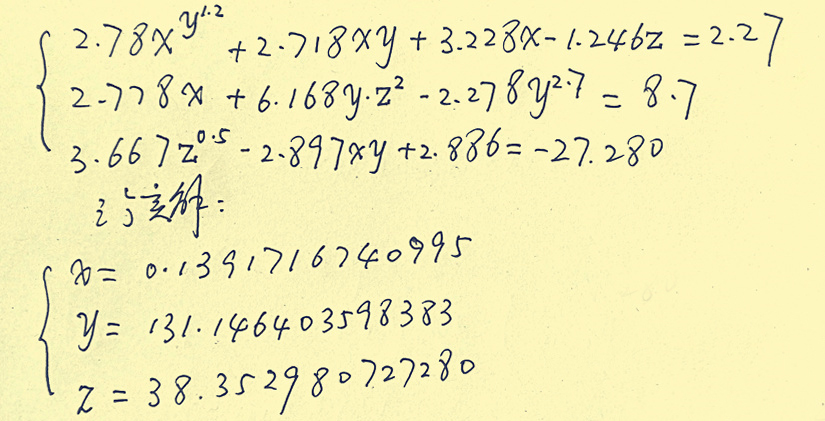 2.78x^{y^{1.2}} + 2.718xy + 3.228x - 1.246z = 2.27
2.778x + 6.168y·z² - 2.278y^{2.7} = 8.7
3.667z^{0.5} - 2.897xy + 2.886 = -27.280
x = 0.1391716740995
y = 131.146403598383
z = 38.352980727280